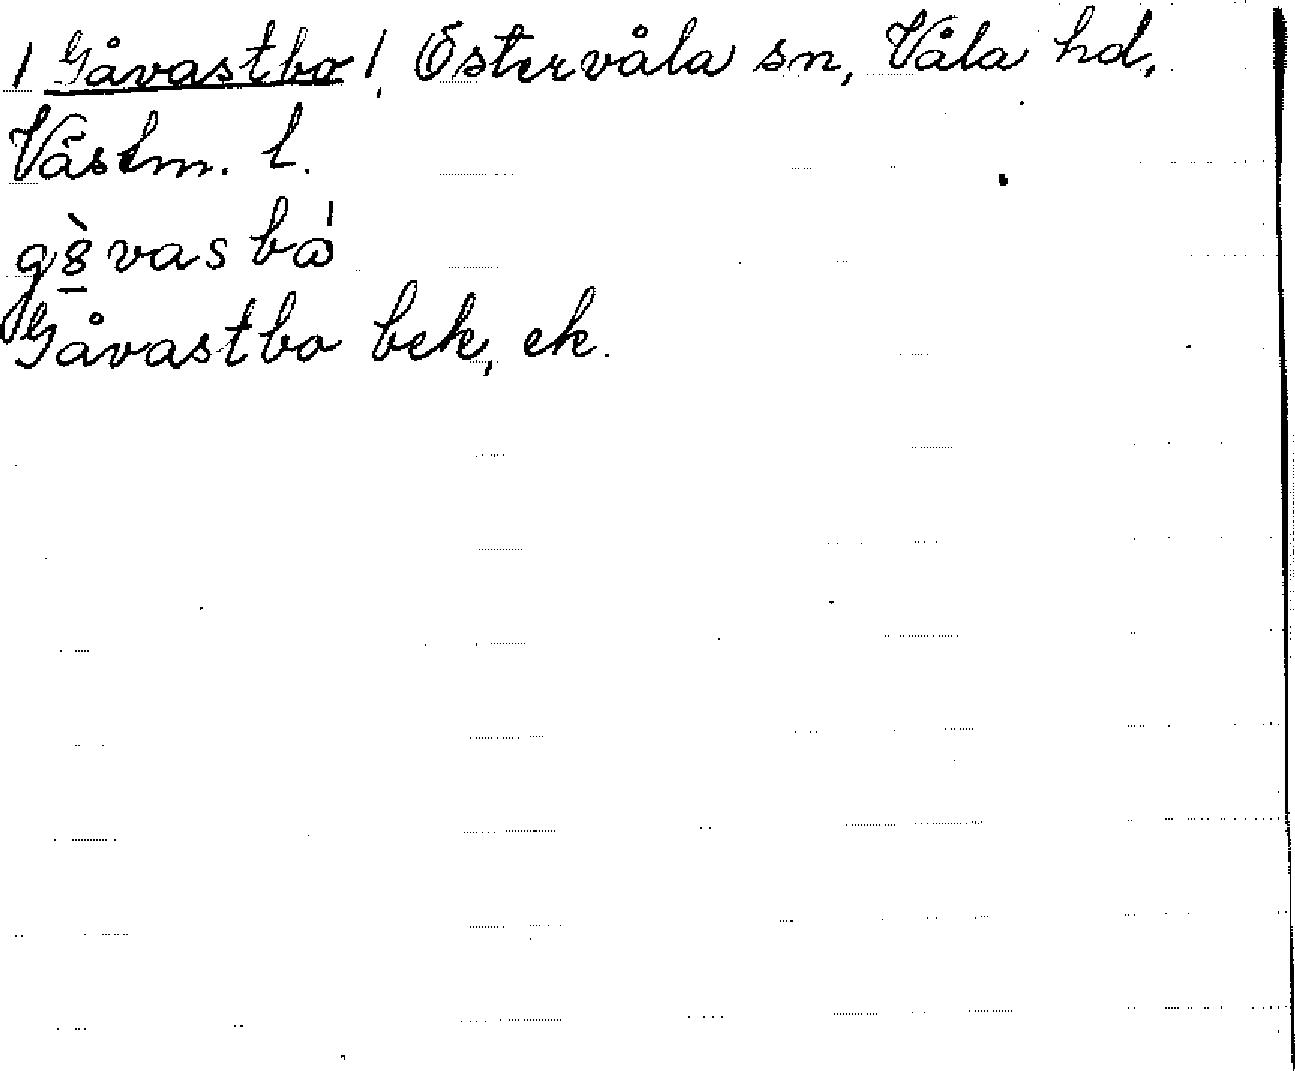 ! Gåvastbo! Östervåla sn, Våla hd,
Västm. l.
Gåvastbo bek, ek.